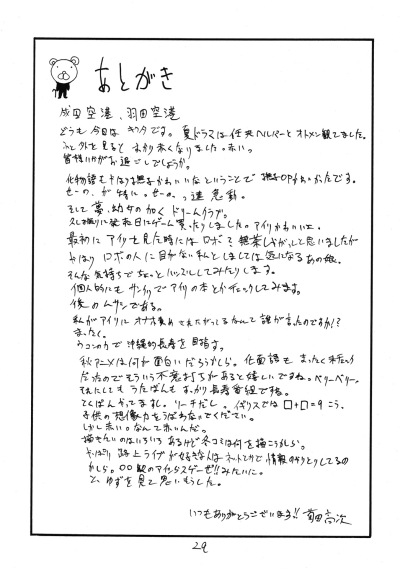 あとがき
成田空港、羽田空港
どうも今日は キクタです。夏ドラマは任侠ヘルパーとオトメン観てました。
ふと外を見ると すっかり赤くなりました。赤い。
皆様いかがお過ごしでしょうか。
化物語もやはり撫子かわいいなということで撫子OPがよかったです。
せーの、が特に。せーの、っ
そして夢、幼女の如く ドリームクラブ。
久し振りに発売日にゲーム買ったりしました。アイリかわいいよ。
最初にアイリを見た時にはロボ？
やはりロボの人に目がない私としましては気になるあの娘。
そんな気持ちでちょっとハッスルしてみたりします。
個人的にも サンクリでアイリの本とかチェックしてみます。
後のムサシである。
私がアイリに なんて誰が言ったのですか!?
まったく。
ウコンの力で沖縄的長寿を目指す。
秋アニメは何が面白いだろうかしら。化物語も まったく
だったのでもういう不意打ちがあると嬉しいですね。ベリーベリー。
それにしても うたばんも すっかり長寿番組で
てくばんやってまし。リーチだし。イギリスでは□+□=9 こう、
子供の想像力をうばわないでください。
しかし赤い。なんて赤いんだ。
描きたいのはいろいろあるけど冬コミは何を描こうかしら。
やっぱり 路上ライブが好きな人はネットとかで情報のやりとりしてるの
かしら。○○駅のアイツらスゲーぜ!!みたいに。
と、ゆずを見て思いもうした。
いつもありがとうございます!! 菊田高次
29